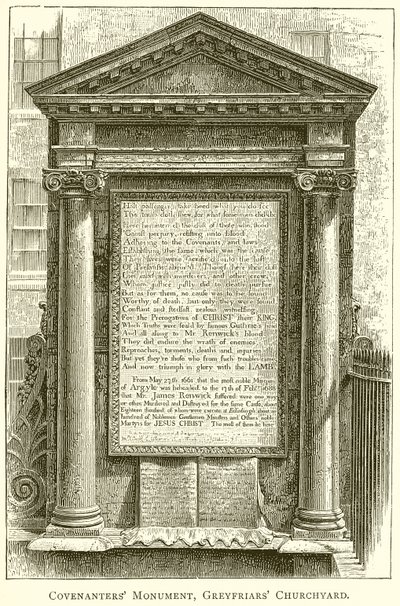 Halt passenger, take heed what you do see
This tomb doth shew, for what some men did die
Here lies interr'd the dust of those who stood
'Gainst perjury, resisting unto blood
Adhering to the Covenants, and laws
Establishing the same: which was the cause
Their lives were sacrific'd unto the lust
Of Prelatists abjur'd. Though here their dust
Lies mixt with murderers, and other crew
Whom justice justly did to death pursue
But as for them, no cause was to be found
Worthy of death, but only they were found
Constant and stedfast, zealous, witnessing
For the Prerogatives of CHRIST their KING
Which Truths were seal'd by famous Guthrie's head
And all along to Mr. Renwick's blood
They did endure the wrath of enemies
Reproaches, torments, deaths and injuries
But yet they're those who from such troubles came
And now triumph in glory with the LAMB
From May 27th. 1661 that the most noble Marquis
of Argyle was beheaded, to the 17th of Feb. 1688
that Mr. James Renwick suffered were one way
or other Murdered and Destroyed for the same Cause, about
Eighteen thousand, of whom were execute at Edinburgh about
hundred of Noblemen Gentlemen Ministers and Others noble
Martyrs for JESUS CHRIST. The most of them lie here
COVENANTERS' MONUMENT, GREYFRIARS' CHURCHYARD.